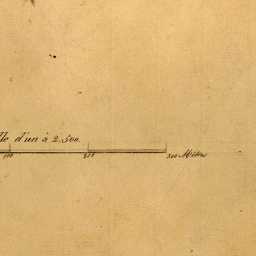 lle d'un à 2.500.
100 200 300 Mètres